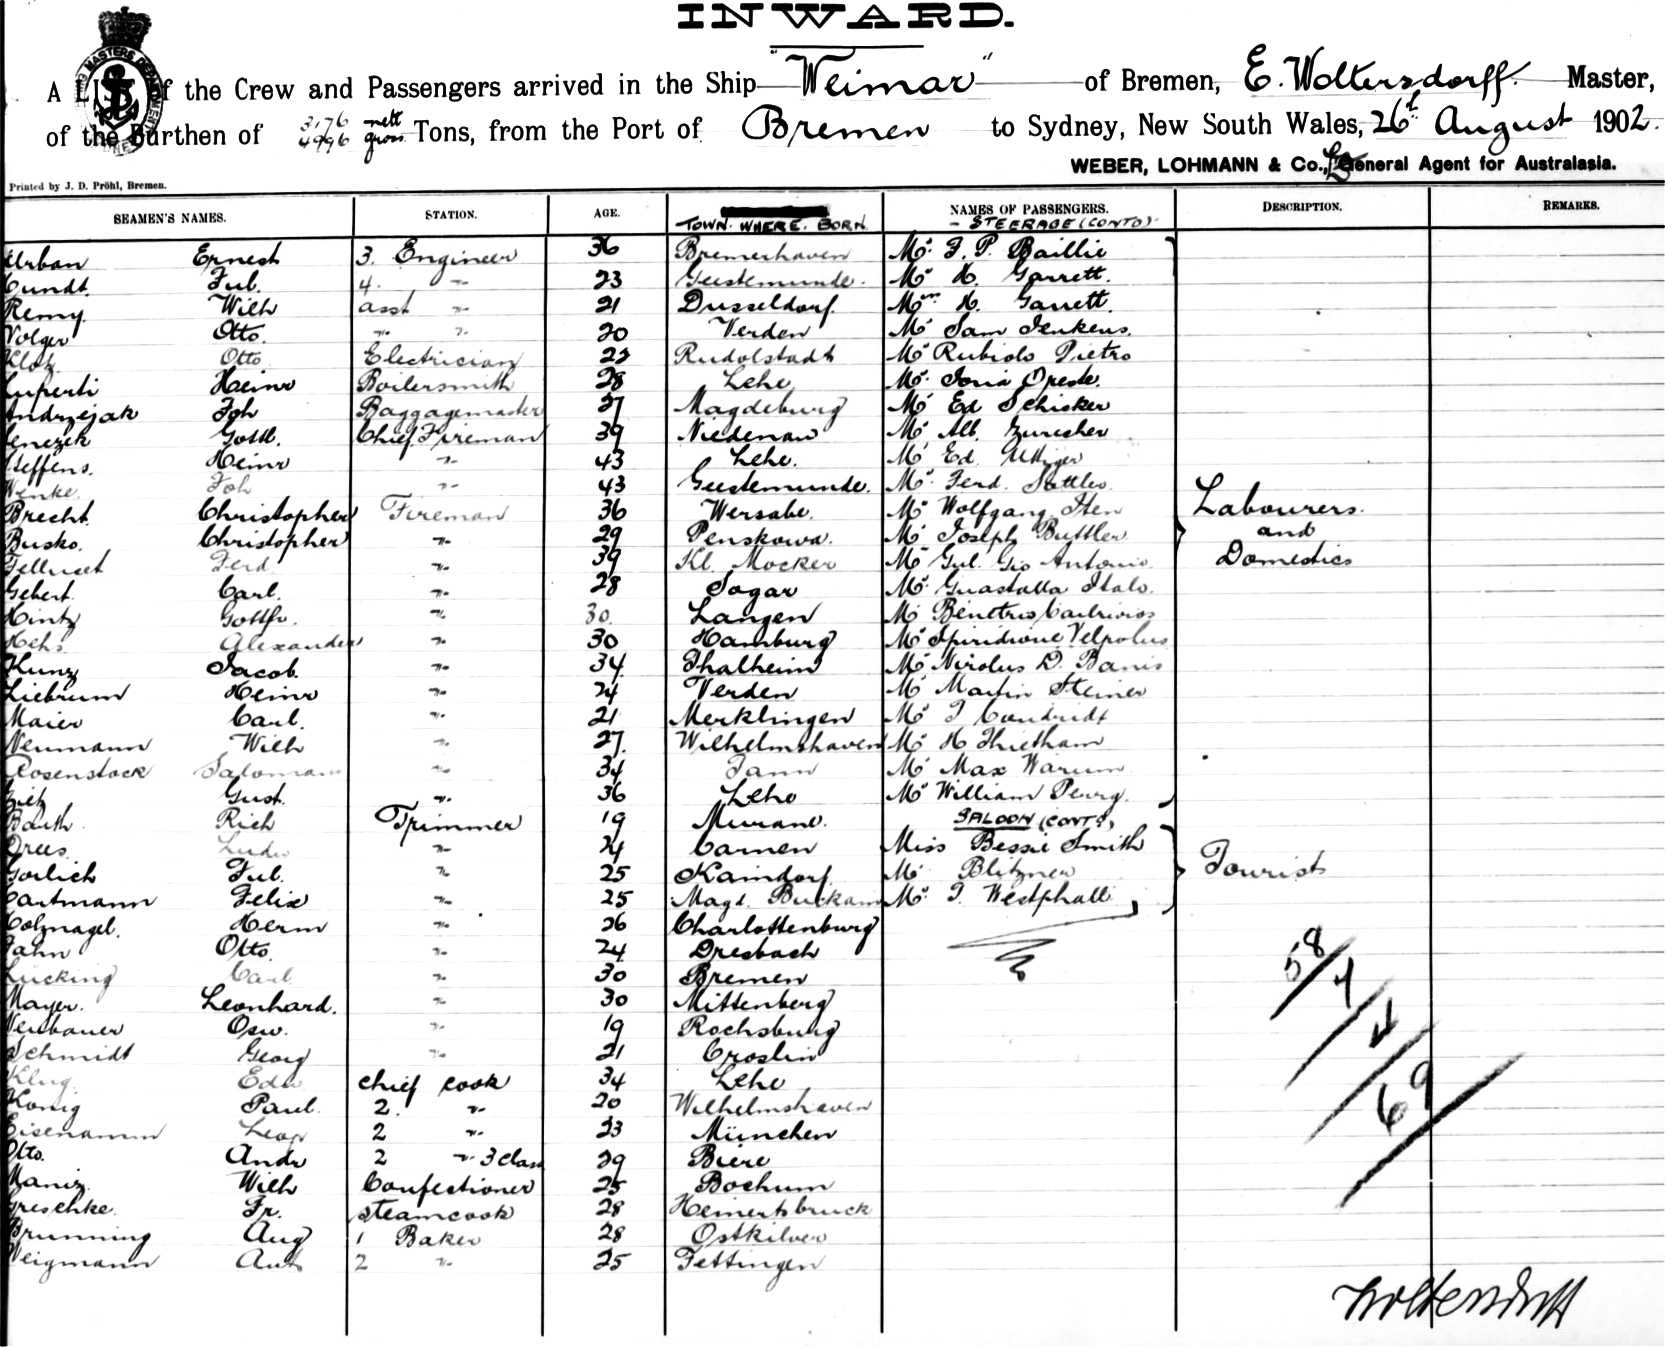 INWARD.
A LIST of the Crew and Passengers arrived in the Ship "Weimar" of Bremen, E. Woltersdorff. Master,
of the Burthen of 3176 nett 4996 gross Tons, from the Port of Bremen to Sydney, New South Wales, 26th August 1902.
WEBER, LOHMANN & Co., General Agent for Australasia.
Printed by J. D. Pröhl, Bremen.
SEAMEN'S NAMES. STATION. AGE. TOWN WHERE BORN NAMES OF PASSENGERS. DESCRIPTION. REMARKS.
- STEERAGE (CONTD) -
Urban Ernest 3. Engineer 36 Bremerhaven Mr. F. P. Baillie
Cundt. Jul. 4. " 23 Geestemunde. Mr H. Garrett.
Remy. Wilh asst " 21 Dusseldorf. Mrs H. Garrett.
Volger Otto. " " 20 Verden Mr Sam Jenkens.
Klotz Otto Electrician 22 Rudolstadt Mr Rubiolo Pietro
Luperti Heinr Boilersmith 28 Lehe Mr. Oreste.
Andrzejak Joh Baggagemaster 27 Magdeburg Mr Ed Schisker
Gottl. Chief Fireman 39 Niedenau Mr Alb. Zuricher
Steffens. Heinr " 43 Lehe. Mr Ed Uttiger
Wenke. Joh " 43 Geestemunde. Mr. Ferd. Sattler
Brecht Christopher Fireman 36 Wersabe. Mr Wolfgang Iten Labourers
Busko. Christopher " 29 Penskowa. Mr Joseph Buttler and
Ferd. " 39 Kl. Mocker Mr Gio Antonio Domestics
Gebert. Carl. " 28 Sagar Mr. Guastalla Italo.
Hintz Gottfr. " 30. Langen Mr
Hehs Alexander " 30 Hamburg Mr Spiridione
Kunz Jacob. " 34 Thalheim Mr Nicolus D. Banis
Liebrum Heinr " 24 Verden Mr Martin Steiner
Maier Carl. " 21 Merklingen Mr J
Neumann Wilh " 27. Wilhelmshaven Mr H Thietham
Rosenstock Salomon " 34 Tann Mr Max Warum
Gust. " 36 Lehe Mr William Peurg.
SALOON (CONTD)
Barth Rich Trimmer 19 Murano.
Drees Luder " 24 Carnen Miss Bessie Smith
Gorlich Jul. " 25 Kaindorf Mr Blitzner Tourists
Hartmann Felix " 25 Magd. Buckau Mr. J. Westphall
Holznagel. Herm " 26 Charlottenburg
Jahn Otto. " 24 Dresbach
Lucking Carl " 30 Bremen
Mayer. Leonhard. " 30 Mittenberg
Neubauer Osw. " 19 Rochsburg
Schmidt Georg " 21 Croslin
Klug Edw chief cook 34 Lehe
Konig Paul. 2. " 20 Wilhelmshaven
Eisenamm Leop 2 " 23 München
Otto. Andr 2 " 3 class 29 Biere
Maniz. Wilh Confectioner 25 Bochum
Greschke. Fr. steamcook 28 Heinertsbruck
Brunning Aug 1 Baker 28 Ostkilver
Weigmann Ant 2 " 25 Tettingen
58/
4/
69
Woltersdorff